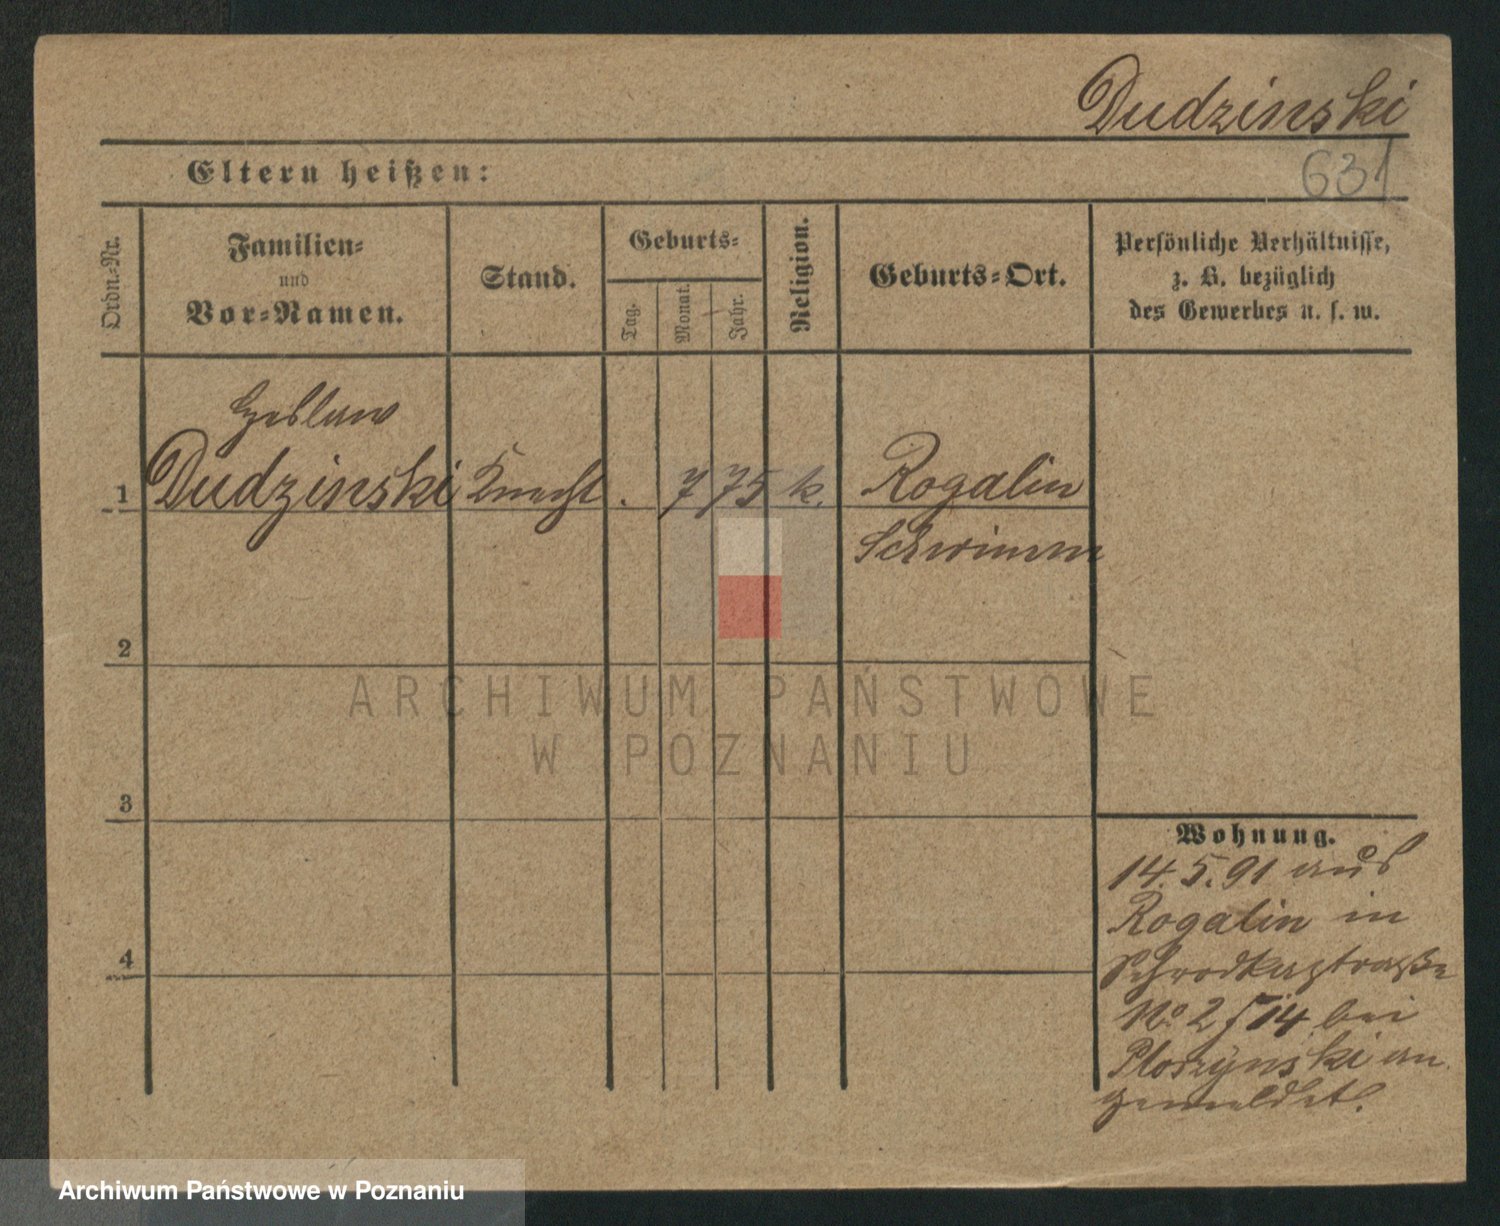 Dudzinski
631
Eltern heißen:
Ordn.-Nr.
Familien-
und
Vor-Namen.
Stand.
Geburts-
Tag.
Monat.
Jahr.
Religion.
Geburts-Ort.
Persönliche Verhältnisse,
z. B. bezüglich
des Gewerbes u. s. w.
1 Dudzinski Knecht . 7 75 k. Rogalin
Schrimm
2
3
4
Wohnung.
14.5.91 aus
Rogalin in
Schrodkastraße
No 2 / 14 bei
an
gemeldet.
ARCHIWUM PAŃSTWOWE
W POZNANIU
Archiwum Państwowe w Poznaniu